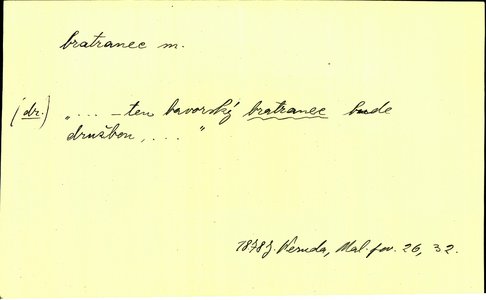 bratranec m.
(dr.) "... – ten bavorský bratranec bude
družbou, ... "
1878 J. Neruda, Mal. pov. 26, 32.